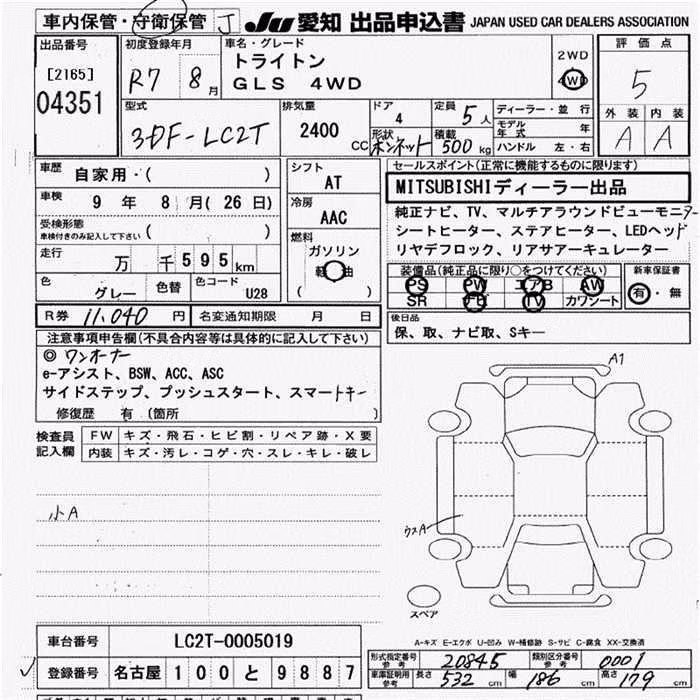 車内保管・守衛保管 J JU 愛知 出品申込書 JAPAN USED CAR DEALERS ASSOCIATION
出品番号 初度登録年月 車名・グレード 評価点
[2165] R7 8月 トライトン 2WD
04351 GLS 4WD 4WD 5
型式 排気量 ドア 定員 ディーラー・並行 外装 内装
3DF-LC2T 2400 CC 4 5人 モデル年式 年 A A
形状 ボンネット 積載 500kg ハンドル 左・右
車歴 自家用・( ) シフト セールスポイント(正常に機能するものに限ります)
AT MITSUBISHIディーラー出品
車検 9年 8月(26日) 冷房 純正ナビ、TV、マルチアラウンドビューモニター
受検形態 AAC シートヒーター、ステアヒーター、LEDヘッド
車検付きのみ記入して下さい ( ) 燃料 リヤデフロック、リアサアーキュレーター
走行 万 千595km ガソリン 装備品(純正品に限り○をつけてください) 新車保証書
色 グレー 色替 色コード U28 軽油 PS PW エアB AW 有・無
( ) SR TV カワシート
R券 11,040円 名変通知期限 月 日 後日品
注意事項申告欄(不具合内容等は具体的に記入して下さい) 保、取、ナビ取、Sキー
◎ワンオーナー
e-アシスト、BSW、ACC、ASC
サイドステップ、プッシュスタート、スマートキー
修復歴 有 (箇所 )
A1
検査員記入欄 FW キズ・飛石・ヒビ割・リペア跡・X要
内装 キズ・汚レ・コゲ・穴・スレ・キレ・破レ
小A
ウスA
スペア
A-キズ E-エクボ U-凹み W-補修跡 S-サビ C-腐食 XX-交換済
車台番号 LC2T-0005019
登録番号 名古屋 100 と 9887
型式指定番号 参考 20845 類別区分番号 参考 0001
車庫証明用 参考 長さ 532 cm 幅 186 cm 高さ 179 cm